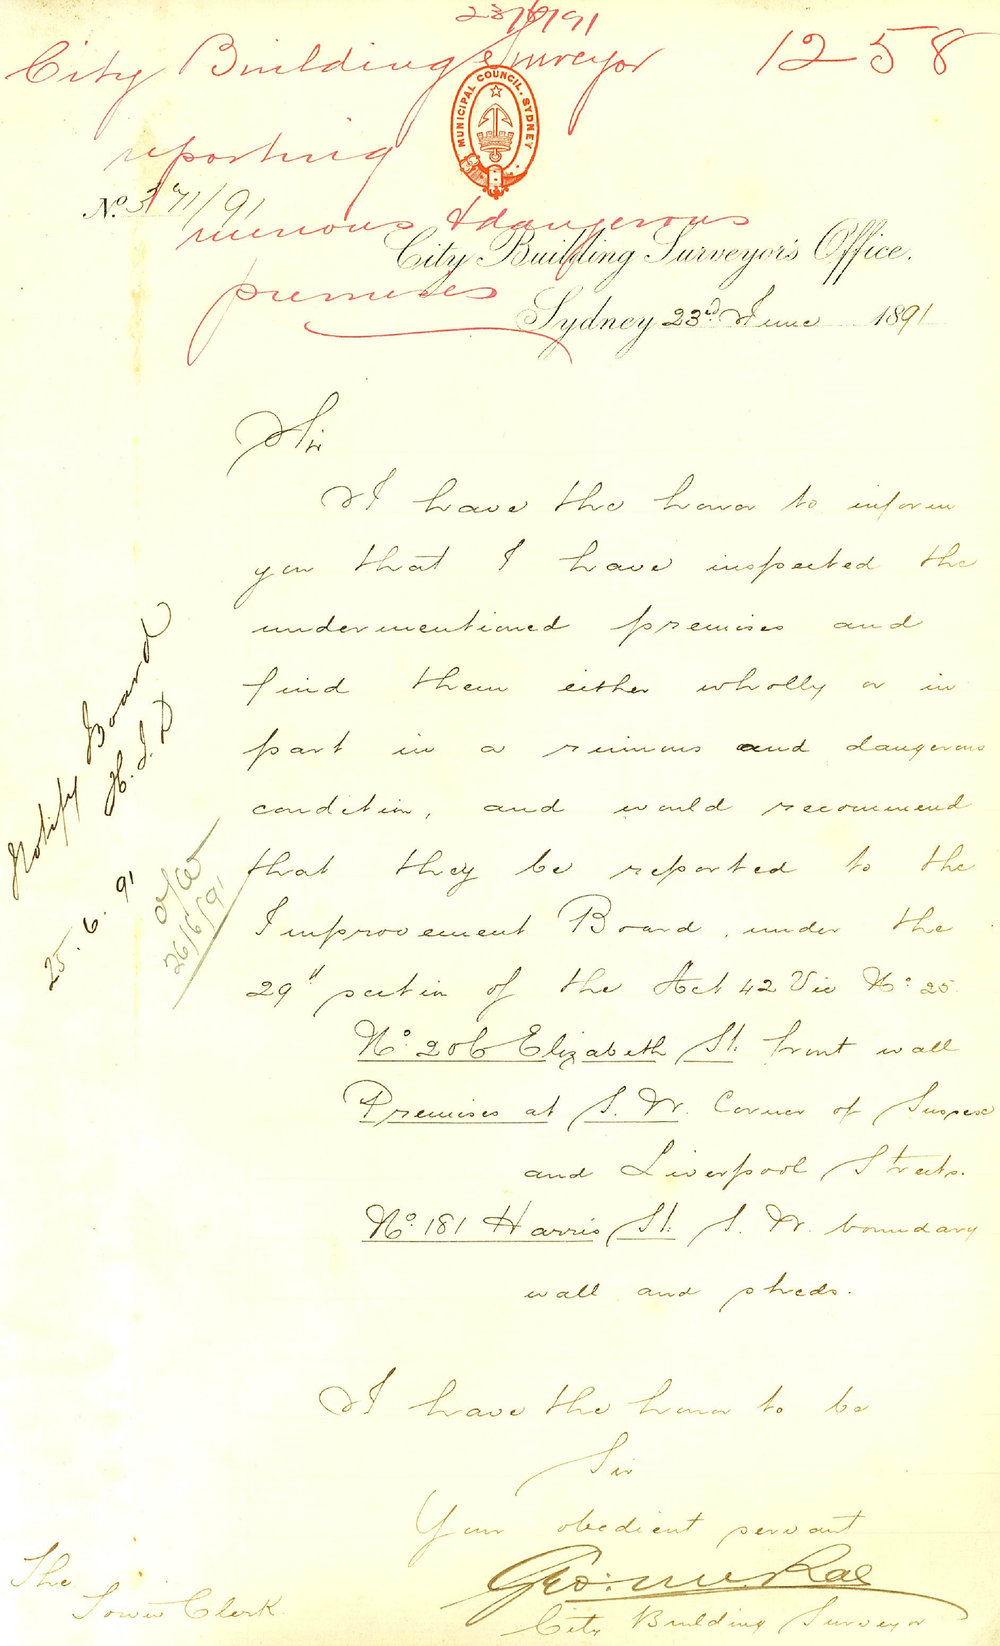 23/6/91
City Building Surveyor 1258
reporting
ruinous & dangerous
premises
MUNICIPAL COUNCIL. SYDNEY
No. 371/91
City Building Surveyor's Office.
Sydney 23rd June 1891
Sir
I have the honor to inform
you that I have inspected the
undermentioned premises and
find them either wholly or in
part in a ruinous and dangerous
condition, and would recommend
that they be reported to the
Improvement Board, under the
29th section of the Act 42 Vic No. 25.
No. 206 Elizabeth St. front wall
Premises at S. W. Corner of Sussex
and Liverpool Streets.
No. 181 Harris St. S. W. boundary
wall and sheds.
I have the honor to be
Sir
Your obedient servant
Geo. McRae
City Building Surveyor
The
Town Clerk
Notify Board
25.6.91
26/6/91